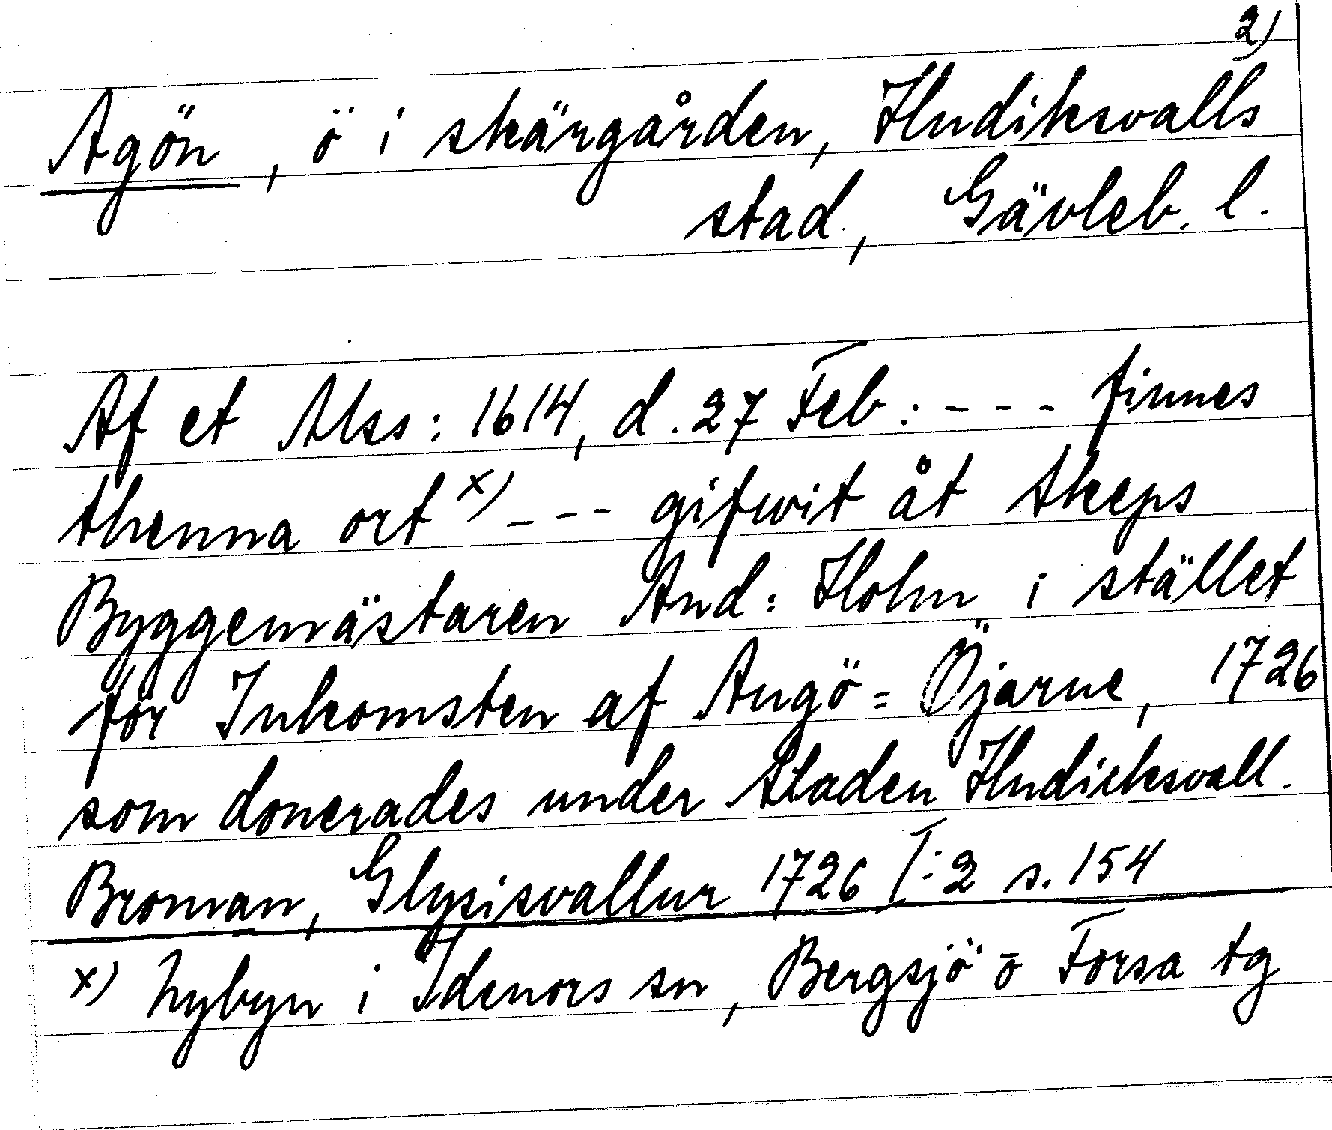 2)
Agön, ö i skärgården, Hudiksvalls
stad, Gävleb. l.
Af et Mss: 1614, d. 27 Feb: - - - finnes
thenna ort x) - - - gifwit åt Skeps
Byggemästaren And: Holm i stället
för Inkomsten af Angö = Öjarne, 1726
som donerades under Staden Hudicksvall.
Broman, Glysisvallur 1726 I:2 s. 154
x) Nybyn i Idenors sn, Bergsjö o Forsa tg